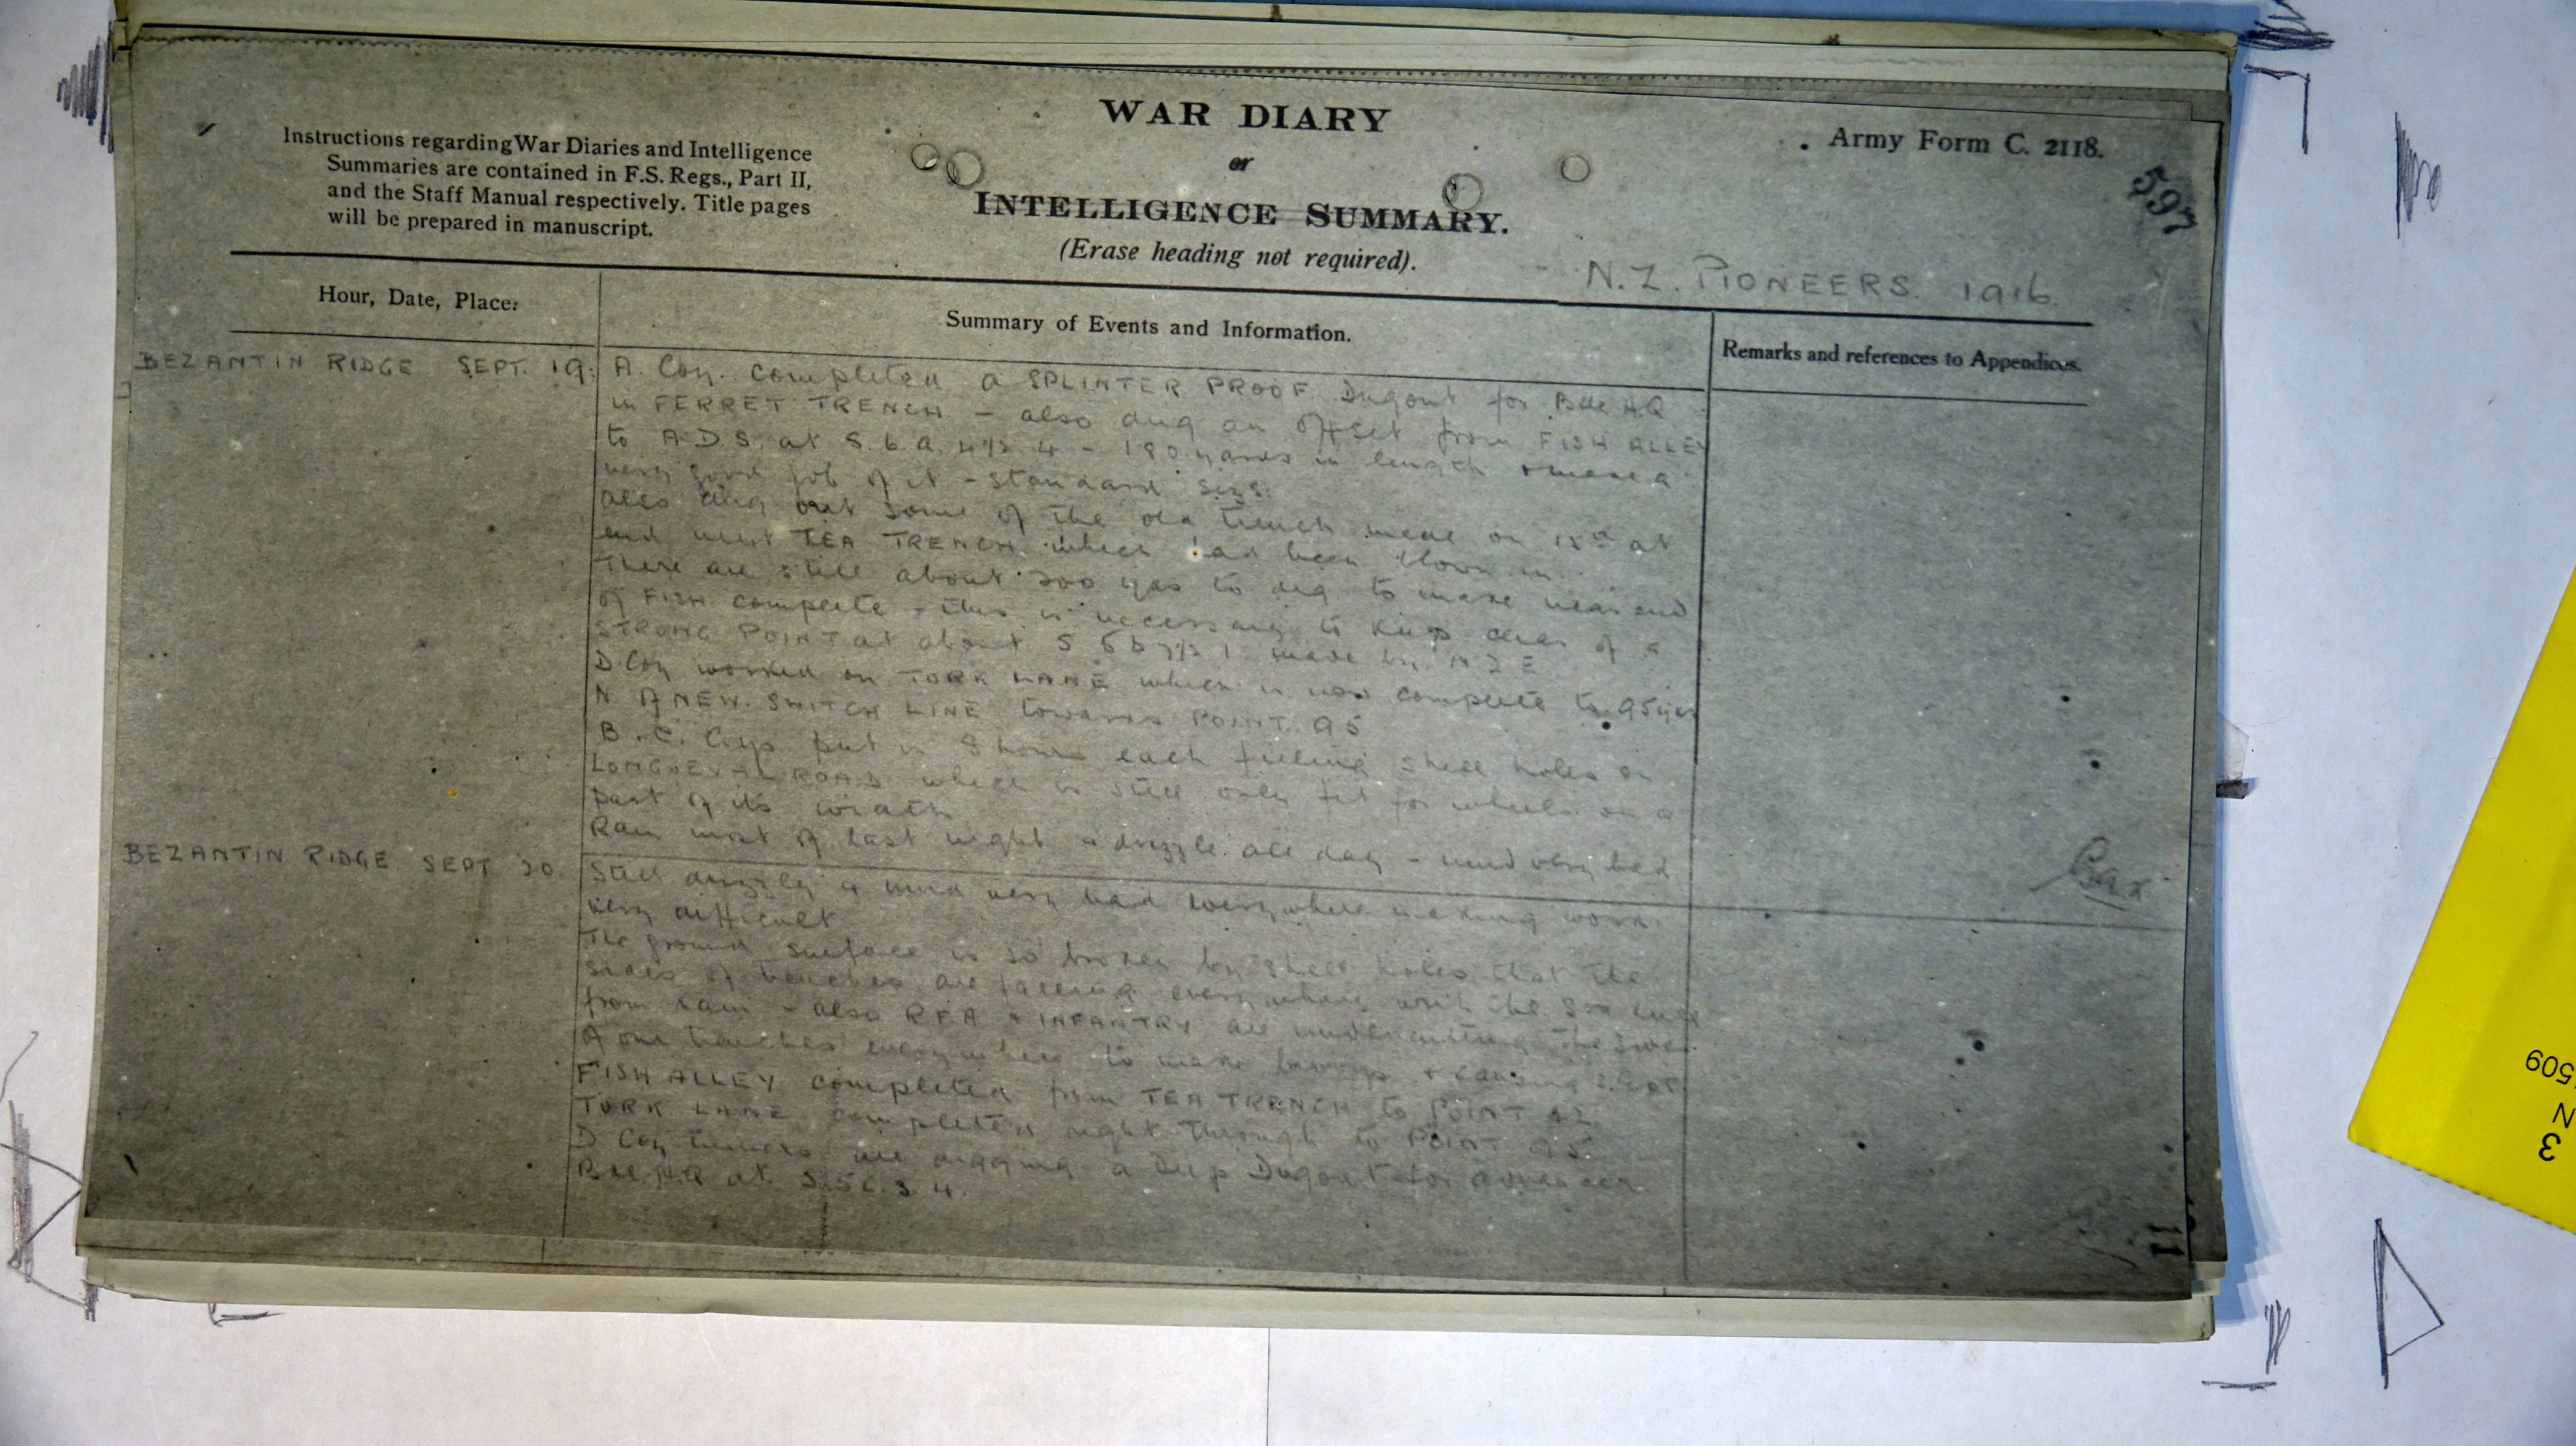 WAR DIARY
or
INTELLIGENCE SUMMARY.
(Erase heading not required).
Instructions regarding War Diaries and Intelligence
Summaries are contained in F.S. Regs., Part II,
and the Staff Manual respectively. Title pages
will be prepared in manuscript.
Army Form C. 2118.
597
N.Z. PIONEERS. 1916.
Hour, Date, Place.
Summary of Events and Information.
Remarks and references to Appendices.
BEZANTIN RIDGE SEPT. 19.
A. Coy. completed a SPLINTER PROOF Dugout for Bde H.Q
in FERRET TRENCH – also dug an offset from FISH ALLEY
to A.D.S. at S.6.a.4½.4 – 180 yards in length & made a
very good job of it – standard size.
Also dug out some of the old trench made on 18th at
end next TEA TRENCH which had been blown in.
There are still about 200 yds to dig to make near end
of FISH complete – this is necessary to keep clear of a
STRONG POINT at about S 6 b 7½ 1 made by N Z E
D Coy worked on TURK LANE which is now complete to 95 yds
N of NEW SWITCH LINE towards POINT 95
B. C. Coys put in 8 hours each filling shell holes on
LONGUEVAL ROAD which is still only fit for wheels on a
part of its width
Rain most of last night & drizzle all day – mud very bad
BEZANTIN RIDGE SEPT 20
Still drizzly & mud very bad everywhere making work
very difficult
The ground surface is so broken by shell holes that the
sides of trenches are falling everywhere with the
from rain – also R.F.A & INFANTRY are undercutting the sides
of our trenches everywhere to make bivvys & causing
FISH ALLEY completed from TEA TRENCH to POINT 42
TURK LANE completed right through to POINT 95
D Coy are digging a Deep Dugout for advanced
Bde H.Q at S.5.c.3.4.
11
509
N
3